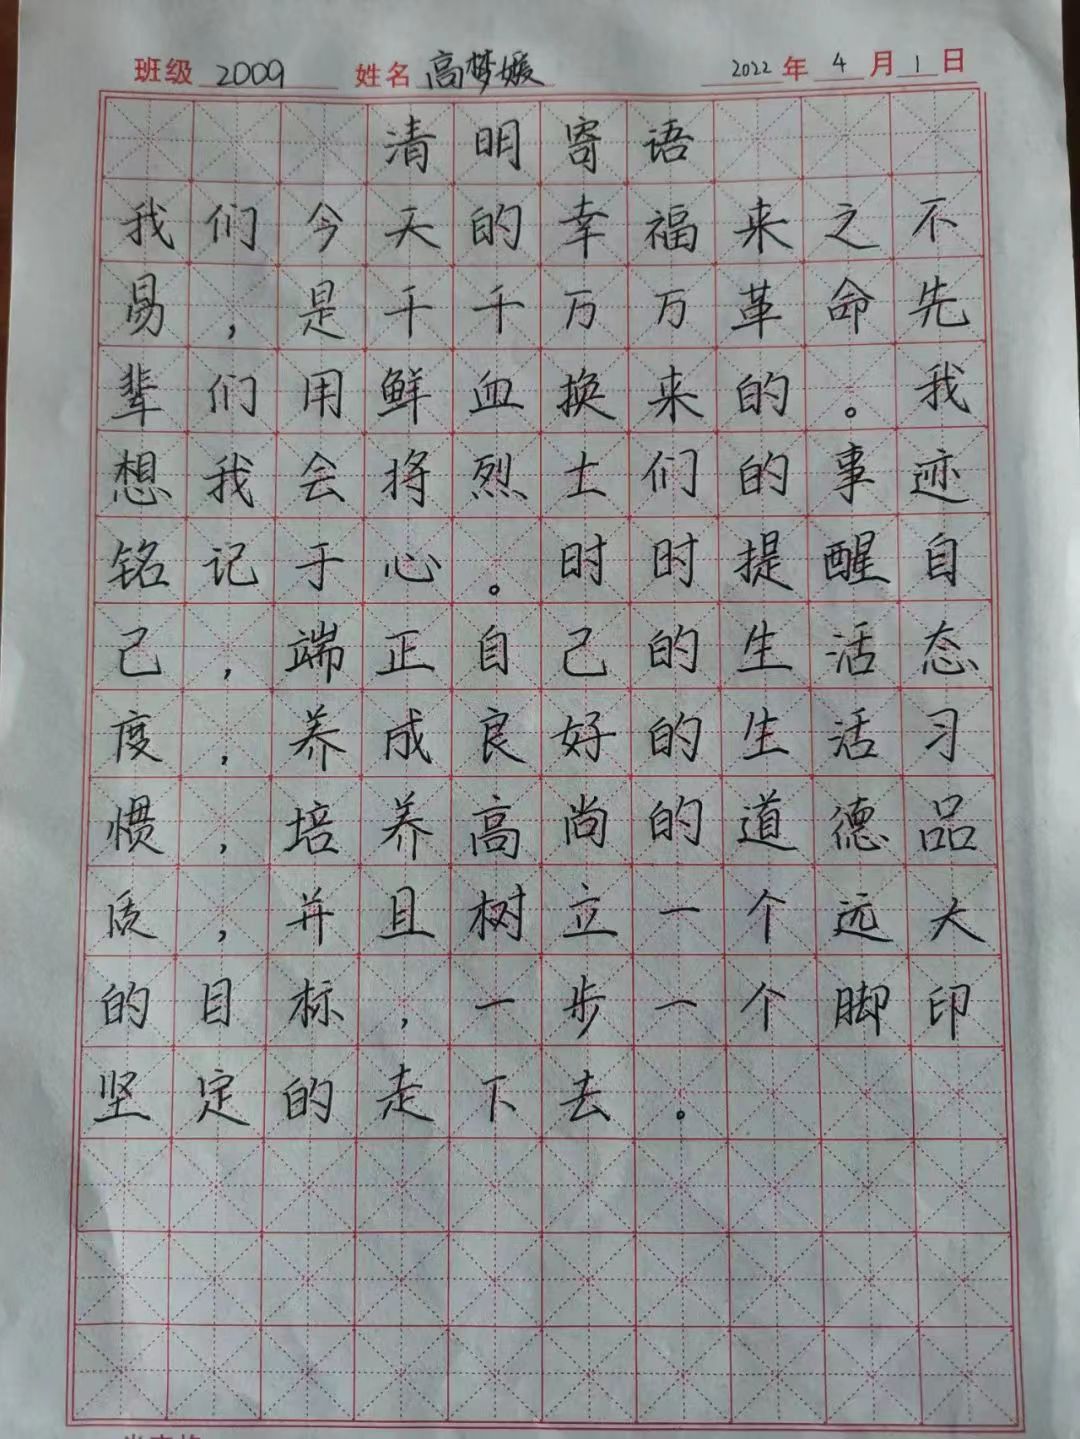 班级 2009 姓名 高梦媛 2022年4月1日
清明寄语
我们今天的幸福来之不
易，是千千万万革命先
辈们用鲜血换来的。我
想我会将烈士们的事迹
铭记于心。时时提醒自
己，端正自己的生活态
度，养成良好的生活习
惯，培养高尚的道德品
质，并且树立一个远大
的目标，一步一个脚印
坚定的走下去。